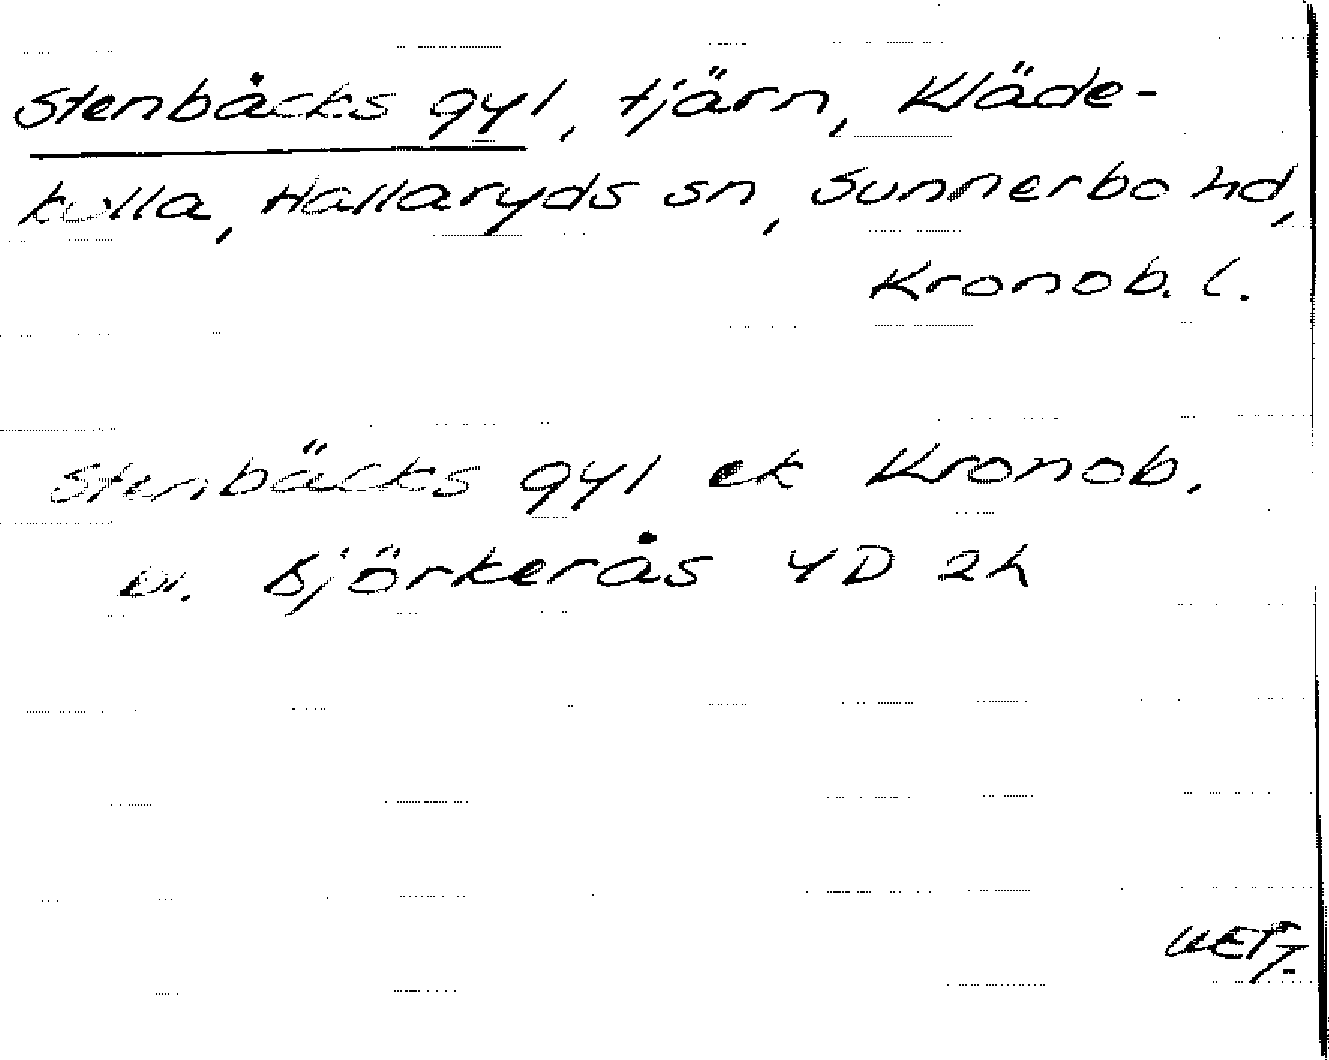 Stenbåcks gyl, tjärn, Kläde-
kulla, Hallaryds sn, Sunnerbo hd,
Kronob. l.
Stenbäcks gyl ek Kronob.
bl. Björkerås 4D 2h